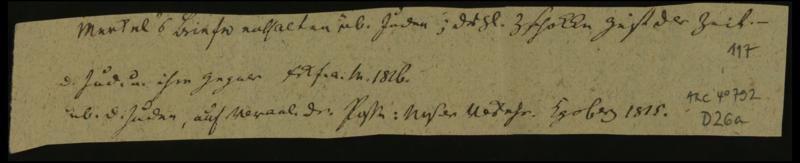 Merkel's Briefe enthalten üb. Juden; desgl. Zschokke Geist der Zeit. –
117
d. Jud. u. ihre Gegner Frkf. a. M. 1816.
üb. d. Juden, auf Veranl. der Posse: Unser Verkehr. 1815.
ARC 4° 792
D26a